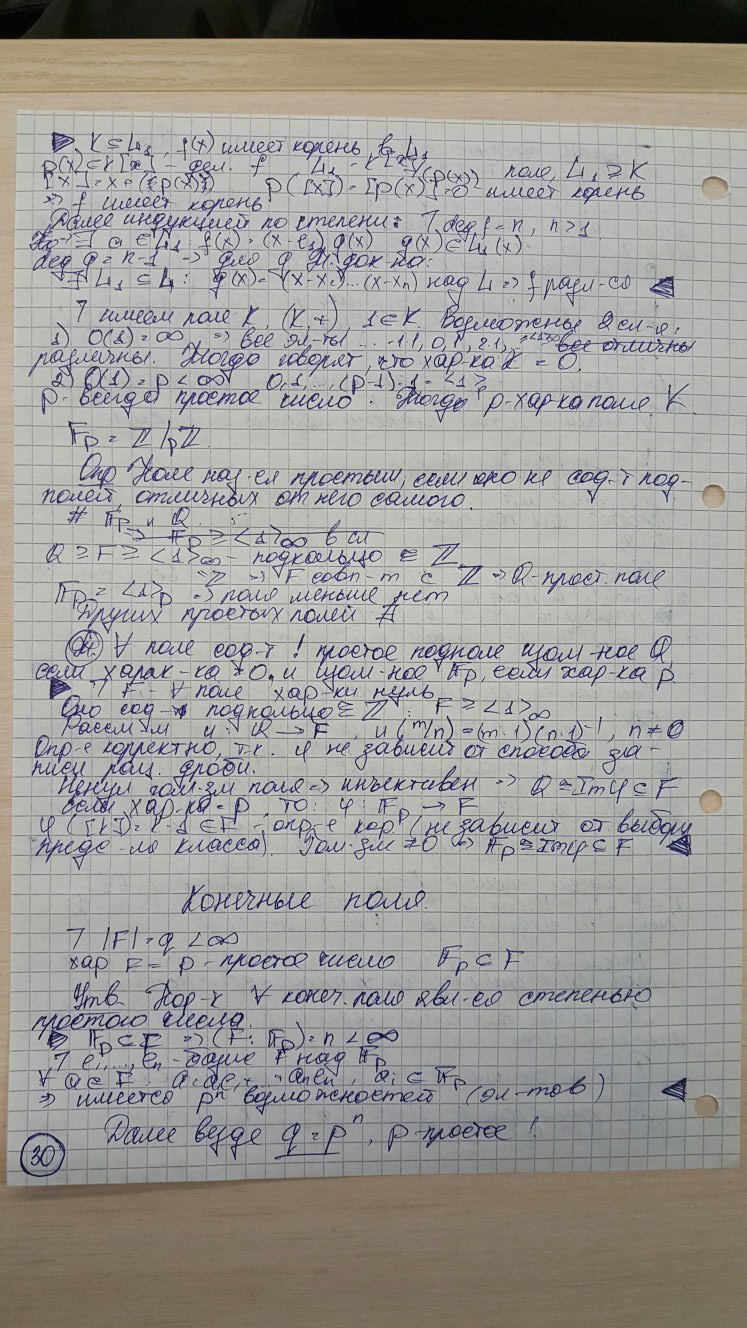 K ⊆ L₁, f(x) имеет корень в L₁
p(x) ∈ K[x] – дел. f L₁ = K[x]/(p(x)) поле, L₁ ⩾ K
[x] = x + (p(x)) p([x]) = [p(x)] = 0 имеет корень
⇒ f имеет корень
Далее индукцией по степени: ⅂ deg f = n, n > 1
∃ a ∈ L₁ f(x) = (x-e₁) g(x) g(x) ∈ L₁(x)
deg g = n-1 ⇒ для g
∃ L₁ ⊆ L: g(x) = (x-x₂)...(x-xₙ) над L ⇒ f разл-ся
⅂ имеем поле K, (K,+) 1 ∈ K. Возможны 2 сл-я:
1) O(1) = ∞ ⇒ все эл-ты ... -1·1, 0, 1, 2·1, ... все отличны
различны. Тогда говорят, что хар-ка K = 0.
2) O(1) = p < ∞ 0, 1, ..., (p-1)·1 = <1>
p - всегда простое число. Тогда p-хар-ка поля K.
𝔽p = ℤ/pℤ
Опр Поле наз-ся простым, если оно не сод-т под-
полей, отличных от него самого.
# 𝔽p и Q
⇒ 𝔽p ⩾ <1>∞ в сл
Q ⩾ F ⩾ <1>∞ - подкольцо ∈ ℤ
≅ ℤ ⇒ F совп-т с ℤ ⇒ Q-прост. поле
𝔽p = <1>p ⇒ поля меньше нет
Других простых полей ∄
∀ поле сод-т ! простое подполе изом-ное Q,
если харак-ка = 0, и изом-ное 𝔽p, если хар-ка p
⅂ F - ∀ поле хар-ки нуль
Оно сод-т подкольцо ≅ ℤ : F ⩾ <1>∞
Рассм-м φ: Q → F, φ(m/n) = (m·1)(n·1)⁻¹, n ≠ 0
Опр-е корректно, т.к. φ не зависит от способа за-
писи рац. дроби.
Ненул. гом-зм поля ⇒ инъективен ⇒ Q ≅ Imφ ⊂ F
если хар-ка = p, то: φ: 𝔽p → F
φ([k]) = k·1 ∈ F - опр-е кор (не зависит от выбора
предс-ля класса). Гом-зм ≠ 0 ⇒ 𝔽p ≅ Imφ ⊆ F
Конечные поля.
⅂ |F| = q < ∞
хар F = p - простое число 𝔽p ⊂ F
Утв. Пор-к ∀ конеч. поля явл-ся степенью
простого числа.
𝔽p ⊂ F ⇒ (F : 𝔽p) = n < ∞
⅂ e₁, ..., eₙ - базис F над 𝔽p
∀ a ∈ F a = a₁e₁ + ... aₙeₙ, aᵢ ∈ 𝔽p
⇒ имеется pⁿ возможностей (эл-тов)
Далее везде q = pⁿ, p-простое!
30